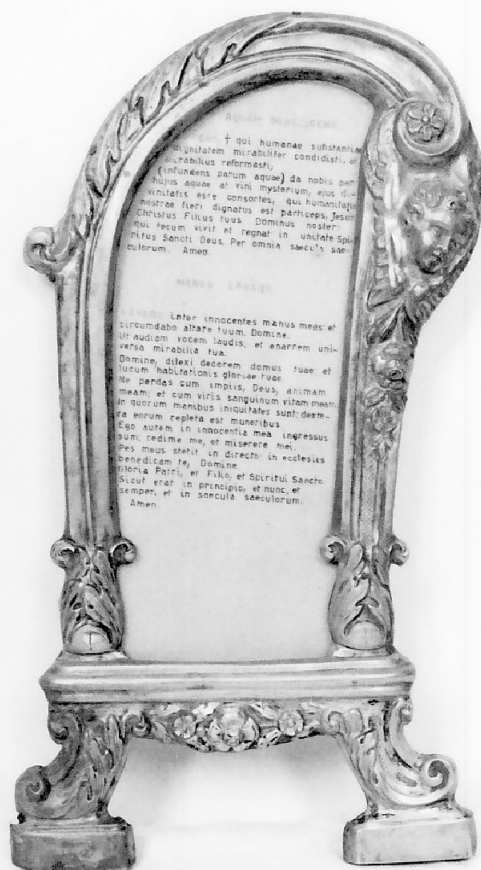 AQUAM BENEDICENS
DEUS † qui humanae substantiae
dignitatem mirabiliter condidisti, et
mirabilius reformasti,
(infundens parum aquae) da nobis per
hujus aquae at vini mysterium, ejus di-
vinitatis esse consortes, qui humanitatis
nostrae fieri dignatus est particeps, Jesus
Christus Filius tuus Dominus noster:
qui tecum vivit et regnat in unitate Spi-
ritus Sancti Deus, Per omnia saecula sae-
culorum. Amen.
MANUS LAVANS
LAVABO inter innocentes manus meas: et
circumdabo altare tuum. Domine.
Ut audiam vocem laudis, et enarrem uni-
versa mirabilia tua.
Domine, dilexi decorem domus tuae; et
locum habitationis gloriae tuae.
Ne perdas cum impiis, Deus, animam
meam; et cum viris sanguinum vitam meam:
In quorum manibus iniquitates sunt; dexte-
ra eorum repleta est muneribus
Ego autem in innocentia mea ingressus
sum; redime me, et miserere mei.
Pes meus stetit in directo: in ecclesiis
benedicam te, Domine.
Gloria Patri, et Filio, et Spiritui Sancto.
Sicut erat in principio, et nunc, et
semper, et in saecula saeculorum.
Amen.